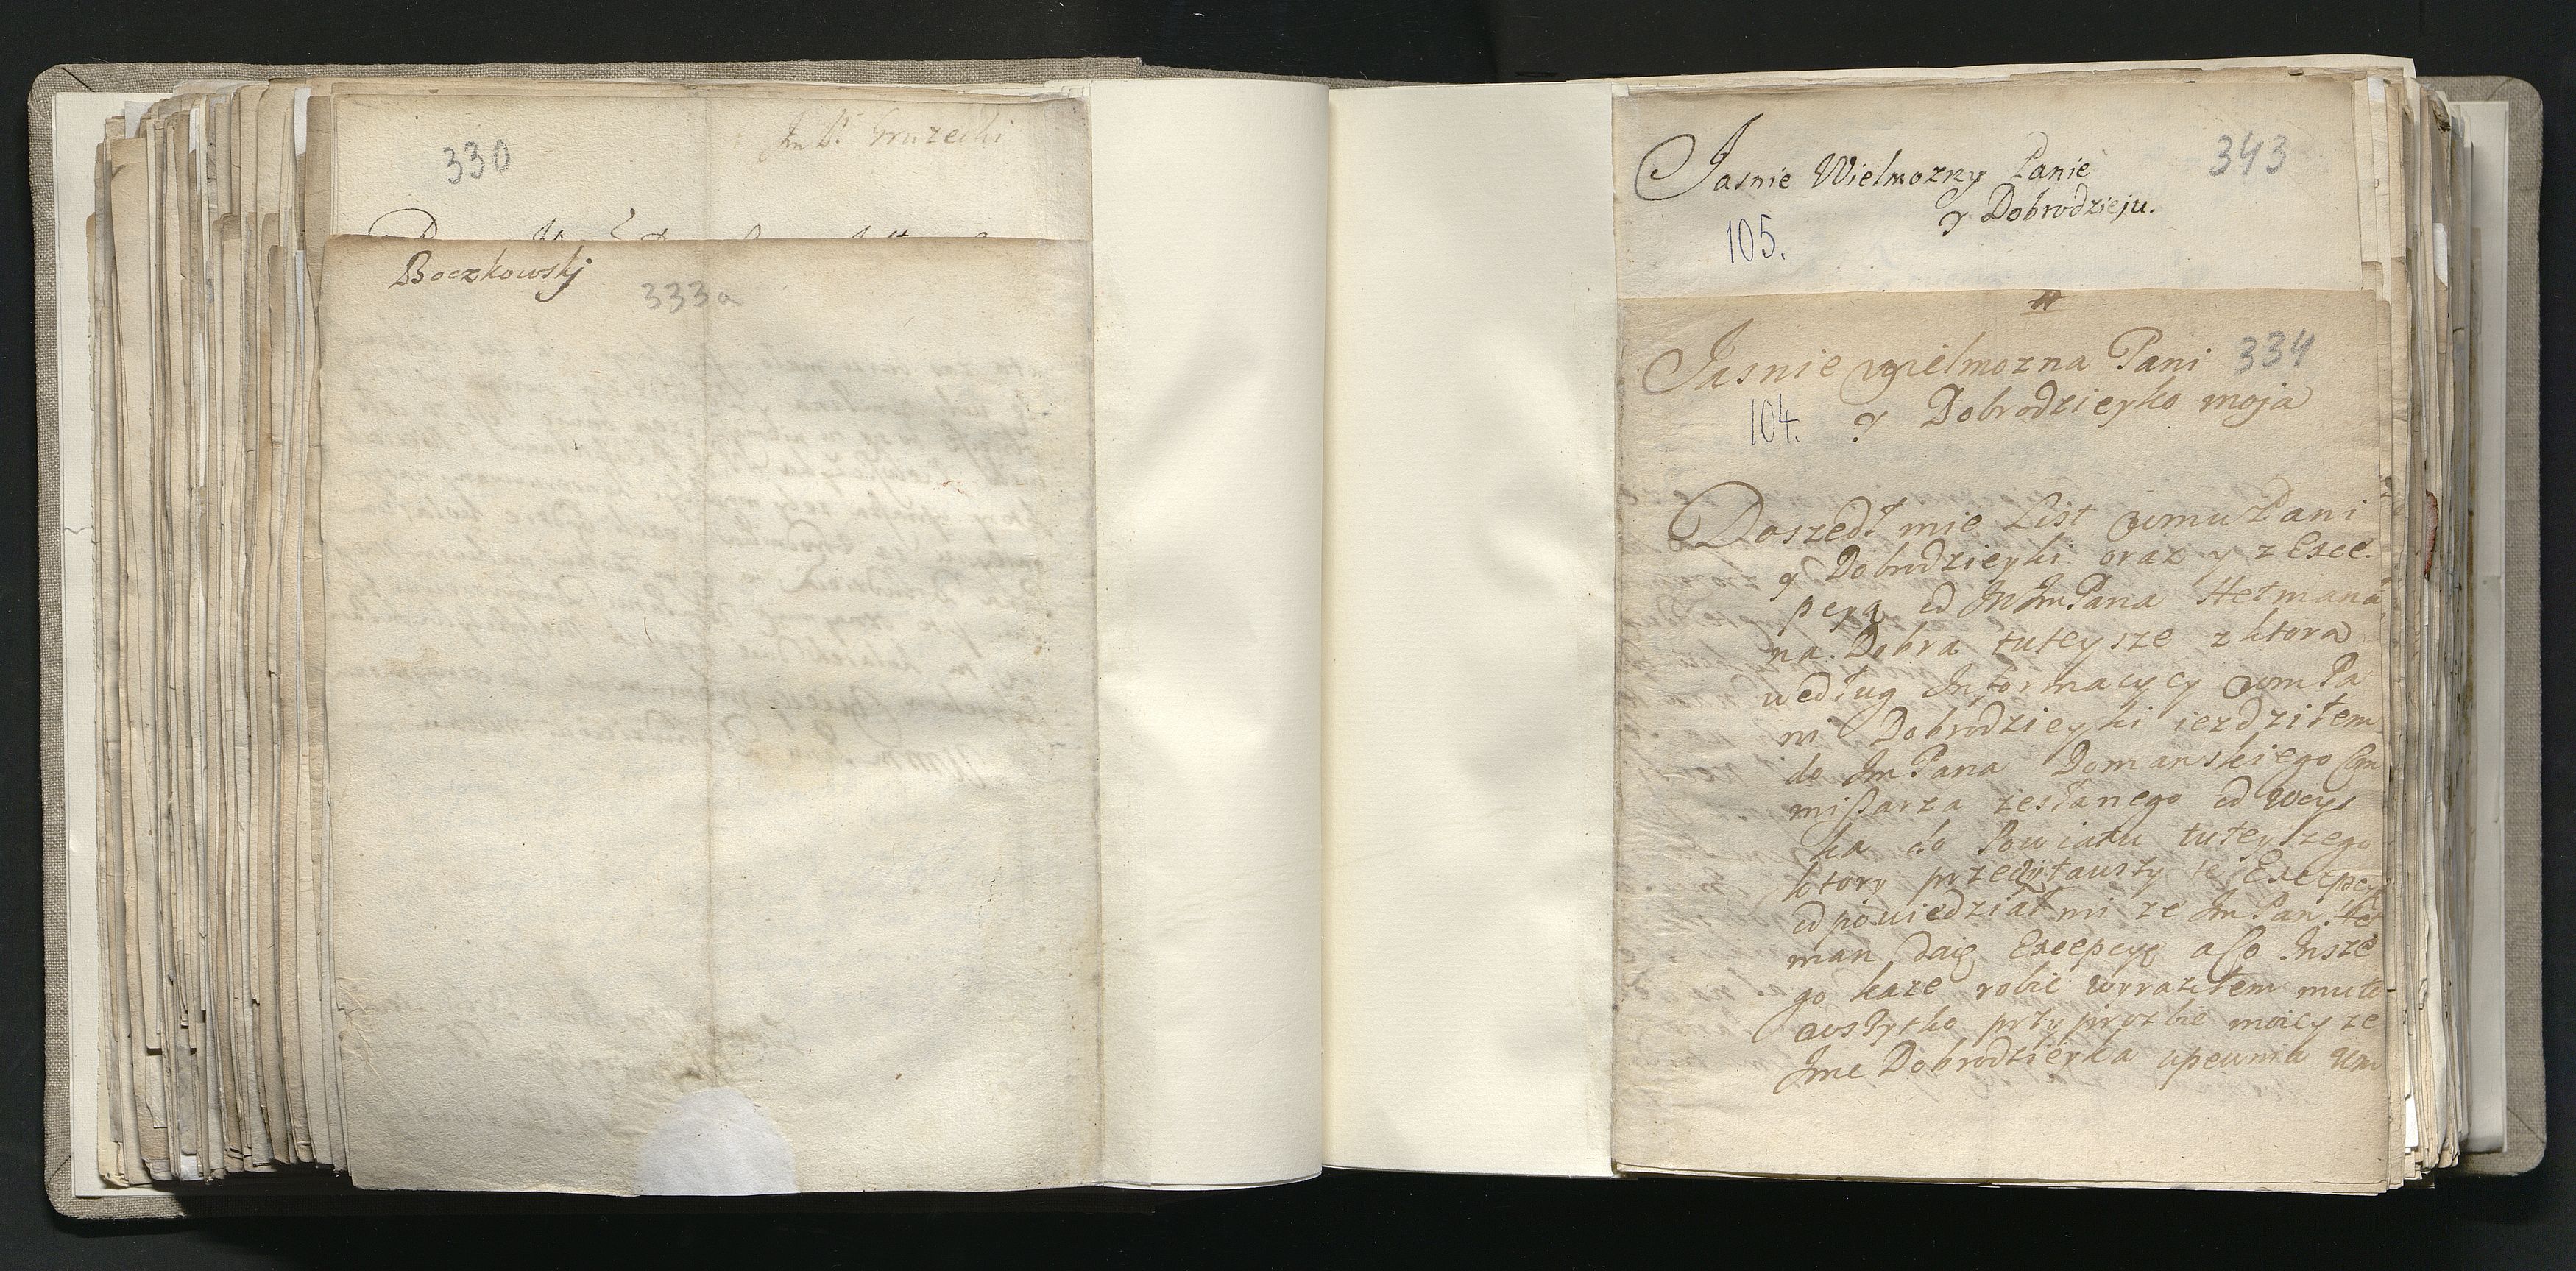 330
Jm P. Gruzecki
Boczkowskj
333a
Jasnie Wielmozny Panie
y Dobrodzieju.
343
105.
Jasnie wielmozna Pani
334
104. y Dobrodzieyko moja
Doszedł mie List wmu Pani
y Dobrodzieyki oraz y z Exce.
pcyą od JWJmPana Hetmana
na Dobra tuteysze z ktora
według Informacycy wm Pa
ni Dobrodzieyki iezdziłem
do JmPana Domanskiego Com
mißarza zesłanego od Woys
ka do Powiatu tuteyszego
ktory przeczytawszy te Excepcyą
odpowiedział mi ze Jm Pan Het
man daię Excepcyę a co Insze
go kaze robic wyraziłem mu to
wszytko przy prozbie moicy ze
Jme Dobrodzieyka upewnia wm